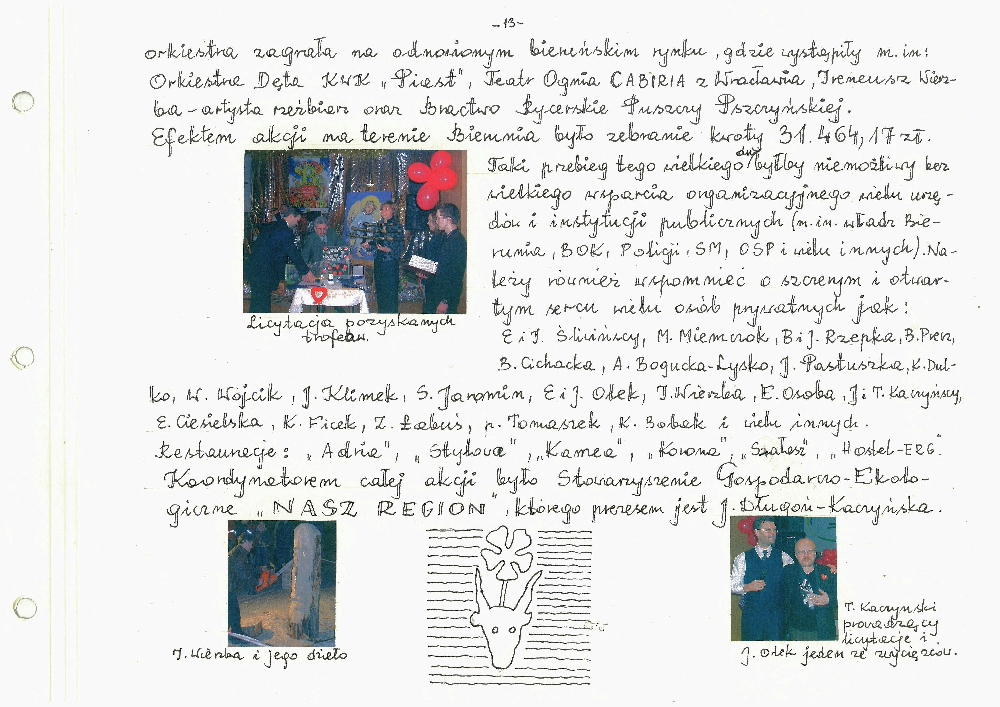 -13-
orkiestra zagrała na odnowionym bieruńskim rynku, gdzie wystąpiły m.in:
Orkiestra Dęta KWK „Piast", Teatr Ognia CABIRIA z Wrocławia, Ireneusz Wierz-
ba - artysta rzeźbiarz oraz Bractwo Rycerskie Puszczy Pszczyńskiej.
Efektem akcji na terenie Bierunia było zebranie kwoty 31.464,17 zł.
Taki przebieg tego wielkiego dnia byłby niemożliwy bez
wielkiego wsparcia organizacyjnego wielu urzę-
dów i instytucji publicznych (m.in. władz Bie-
runia, BOK, Policji, SM, OSP i wielu innych). Na-
leży również wspomnieć o szczerym i otwar-
tym sercu wielu osób prywatnych jak:
E i J. Śliwińscy, M. Niemczok, B i J. Rzepka, B. Pierz,
B. Cichacka, A. Bogucka-Łysko, J. Pastuszka, K. Dul-
ko, W. Wójcik, J. Klimek, S. Jaromin, E i J. Ołek, I. Wierzba, E. Osoba, J i T. Kaczyńscy,
E. Ciesielska, K. Ficek, Z. Łabuś, p. Tomaszek, K. Bobak i wielu innych.
Restauracje: „Adria", „Stylowa", „Kamea", „Korona", „Szałasz", „Hostel-ERG".
Koordynatorem całej akcji było Stowarzyszenie Gospodarczo-Ekolo-
giczne „NASZ REGION", którego prezesem jest J. Długoń-Kaczyńska.
Licytacja pozyskanych
trofeów.
I. Wierzba i jego dzieło
T. Kaczyński
prowadzący
licytacje i
J. Ołek jeden ze zwycięzców.